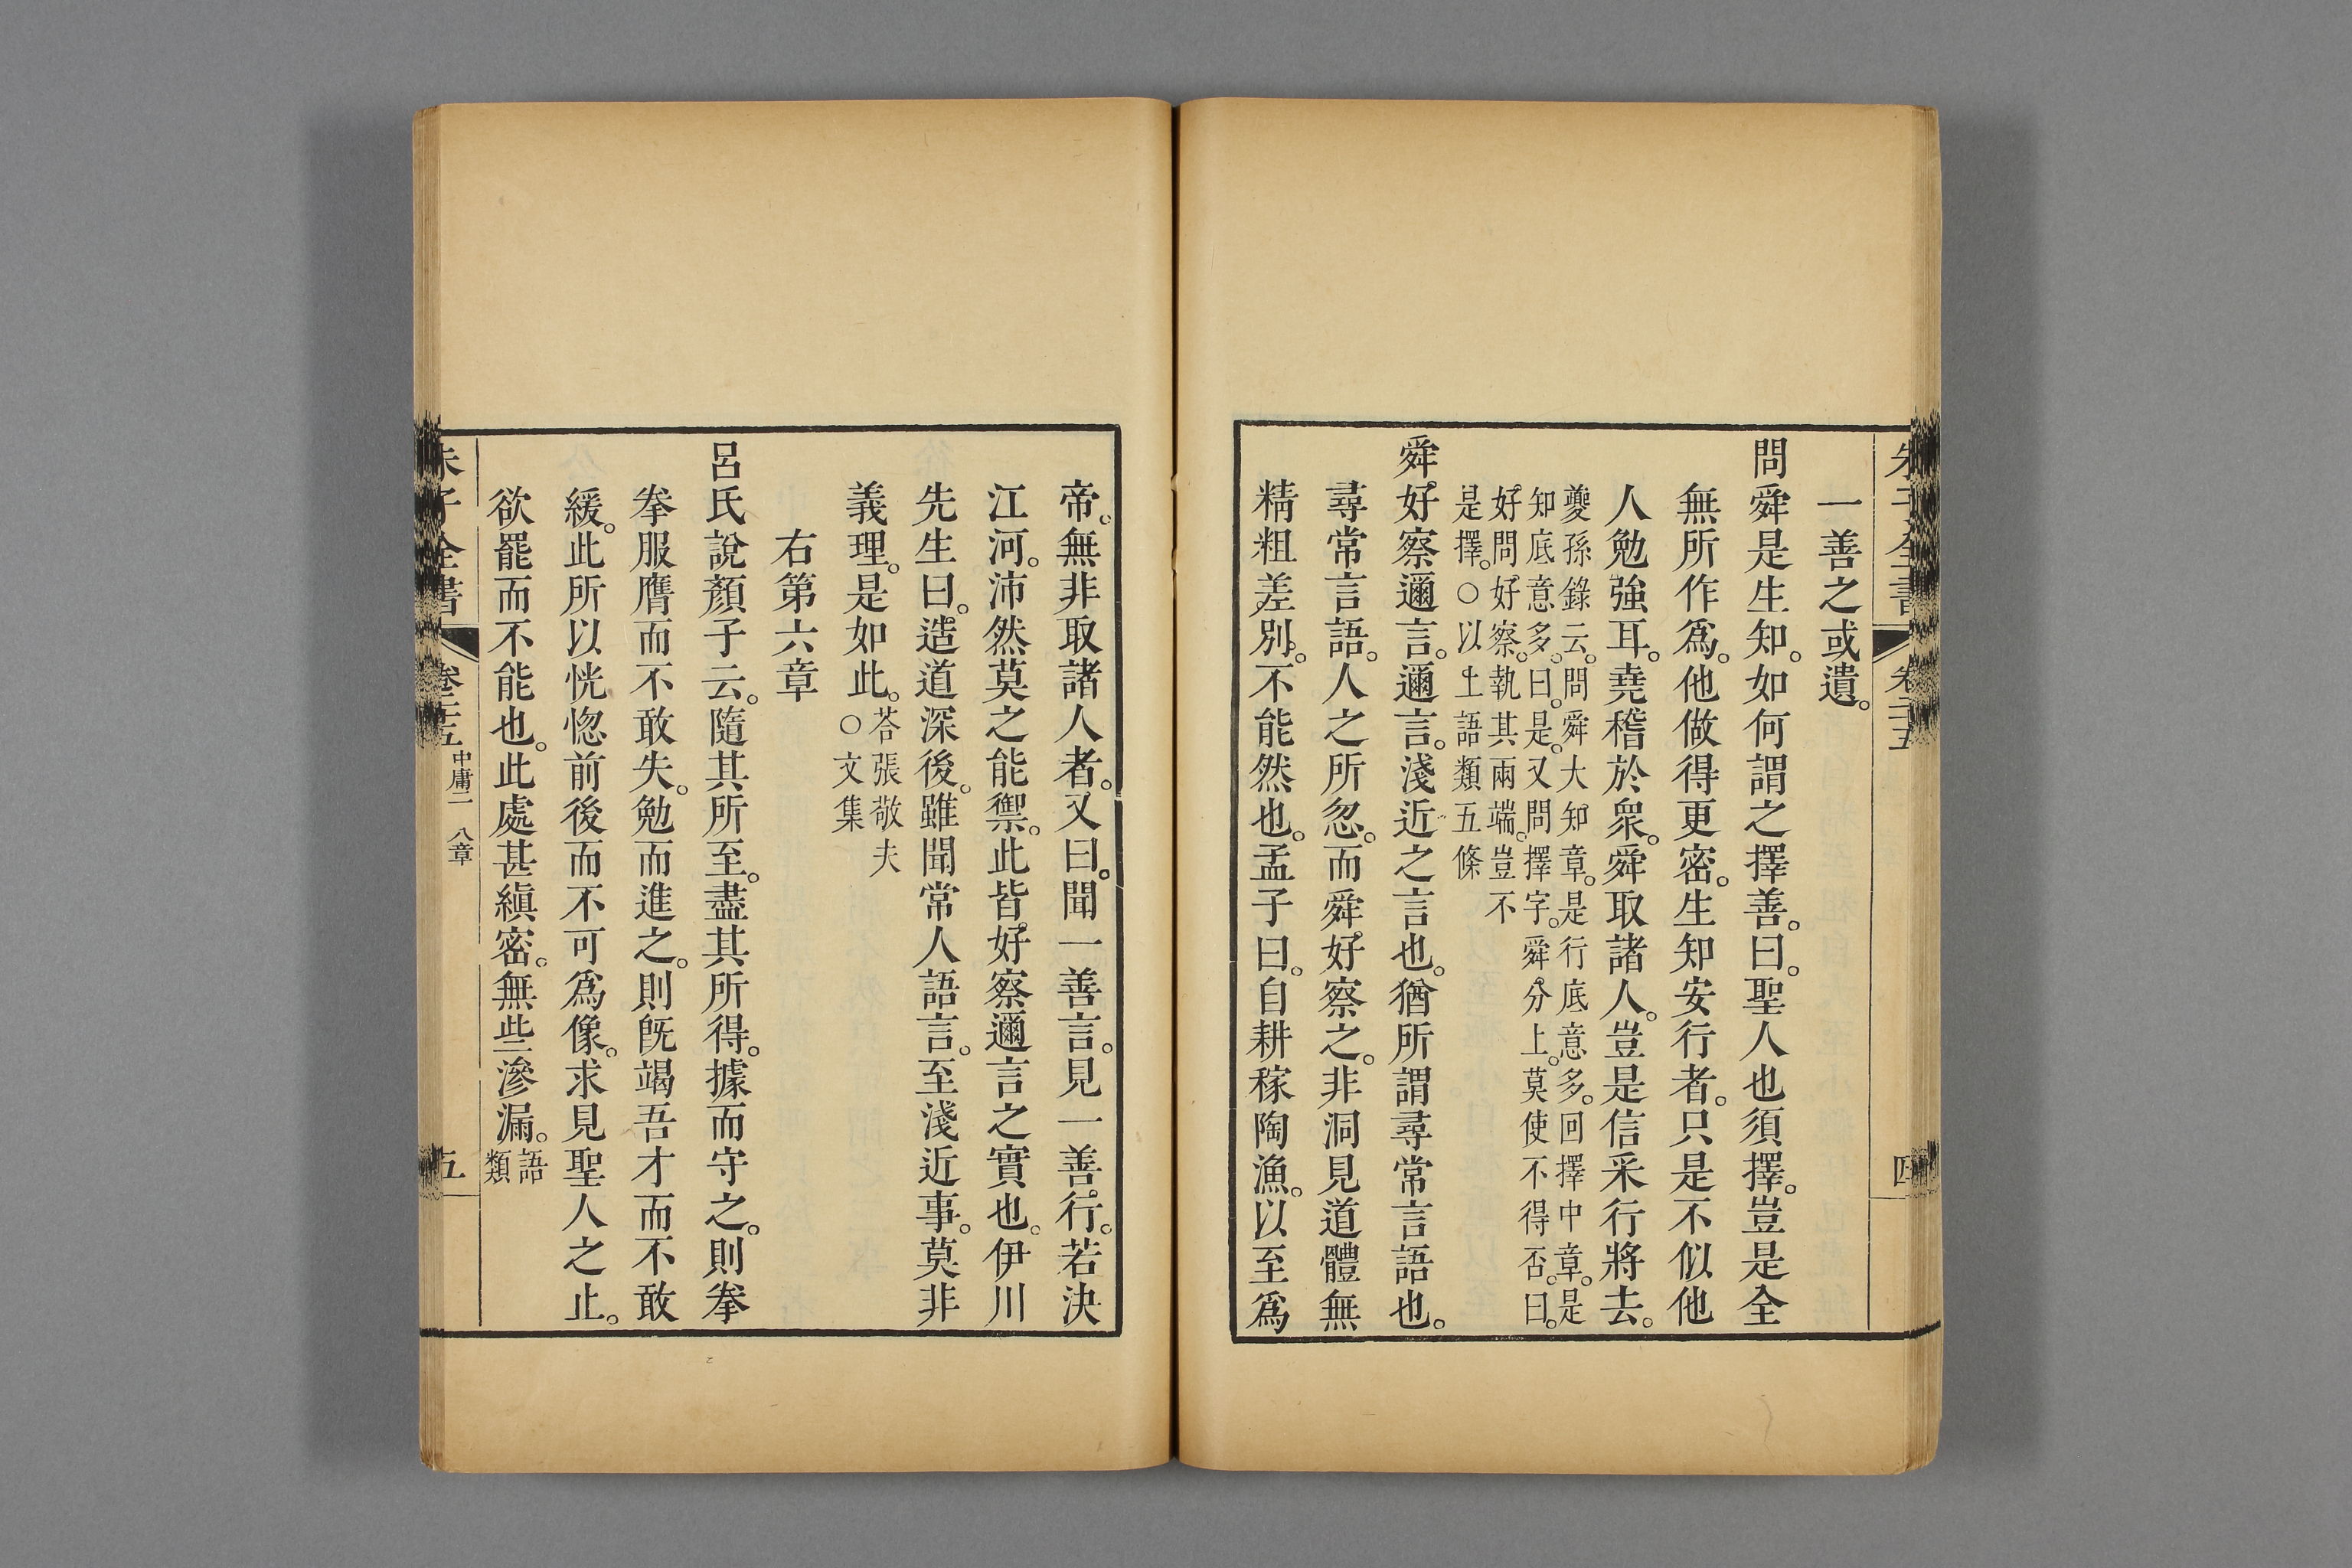 朱子全書 卷二十五 四
一善之或遺。
問舜是生知。如何謂之擇善。曰。聖人也須擇。豈是全
無所作爲。他做得更密。生知安行者。只是不似他
人勉強耳。堯稽於衆。舜取諸人。豈是信采行將去。
夔孫錄云。問舜大知章。是行底意多。回擇中章。是
知底意多。曰。是。又問擇字。舜分上。莫使不得否。曰。
好問好察。執其兩端。豈不
是擇。○以上語類五條
舜好察邇言。邇言。淺近之言也。猶所謂尋常言語也。
尋常言語。人之所忽。而舜好察之。非洞見道體無
精粗差別。不能然也。孟子曰。自耕稼陶漁。以至爲
帝。無非取諸人者。又曰。聞一善言。見一善行。若決
江河。沛然莫之能禦。此皆好察邇言之實也。伊川
先生曰。造道深後。雖聞常人語言。至淺近事。莫非
義理。是如此。
荅張敬夫
○文集
右第六章
呂氏說顏子云。隨其所至。盡其所得。據而守之。則拳
拳服膺而不敢失。勉而進之。則旣竭吾才而不敢
緩。此所以恍惚前後而不可爲像。求見聖人之止。
欲罷而不能也。此處甚縝密。無些滲漏。
語
類
朱子全書 卷二十五 中庸二 八章 五